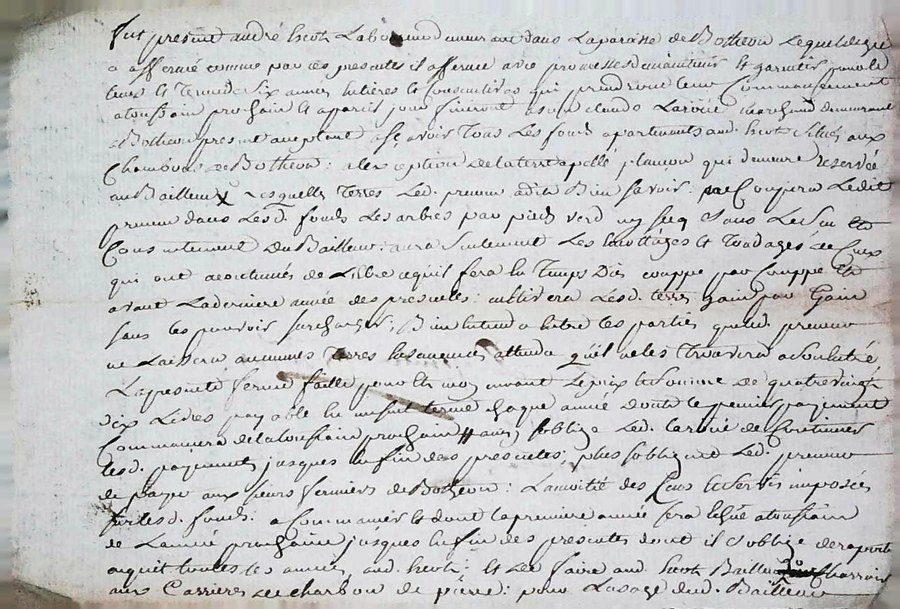 fut présent andré heoth Laboureur demeurant dans La paroisse de Botheon Lequel de gré
a affermé comme par ces presentes il afferme avec promesse de maintenir et garantir pour le
tems et terme de six années entières et consecutives qui prendront leur Commansement
a toussain prochain et a pareil jour finiront a sieur claude Laroüe marchand demeurant
a Botheon present acceptant: sçavoir Tous Les fonds apartenants aud. heoth situés aux
Chambons de Botheon: a lexception de la terre apellé plançon qui demeure reservée
au Bailleur Lesquelles Terres Led. preneur a dit Bien savoir: ne Coupera Ledit
preneur dans Lesd. fonds Les arbres par pieds verd ny secq Sans Le Sceu et
Consentement Du Bailleur; aura seulement Les et de Ceux
qui ont acoutumés de L'être ce quil fera en Temps Dûs couppe par Couppe et
avant La derniere année des presentes: cultivera Lesd. terres Gain par Gain
sans les pouvoir surcharger; Bien entendu entre les parties que led. preneur
ne Laissera aucunnes Terres attendu qu'il ne les Trouvera
La presente ferme faitte pour et moyennant Le prix et somme de quatre vingt
dix Livres payable en un seul terme chaque année dont le premier payement
Commancera de la toussain prochain en un an; s'obligé Led. Laroüe de Continuer
lesd. payements jusques en fin des presentes; plus s'oblige Led. preneur
de payer aux sieurs fermiers de Botheon: La moitié des Cens et servis imposés
sur lesd. fonds: a Commancer et dont la premiere année sera echüe a toussain
de L'année prochaine jusques en fin des presentes dont il s'oblige de raporter
aquit toutes les années aud. heoth: et de faire aud. heoth Bailleur Charrois
aux Carrieres de charbon de pierre: pour L'usage dud. Bailleur